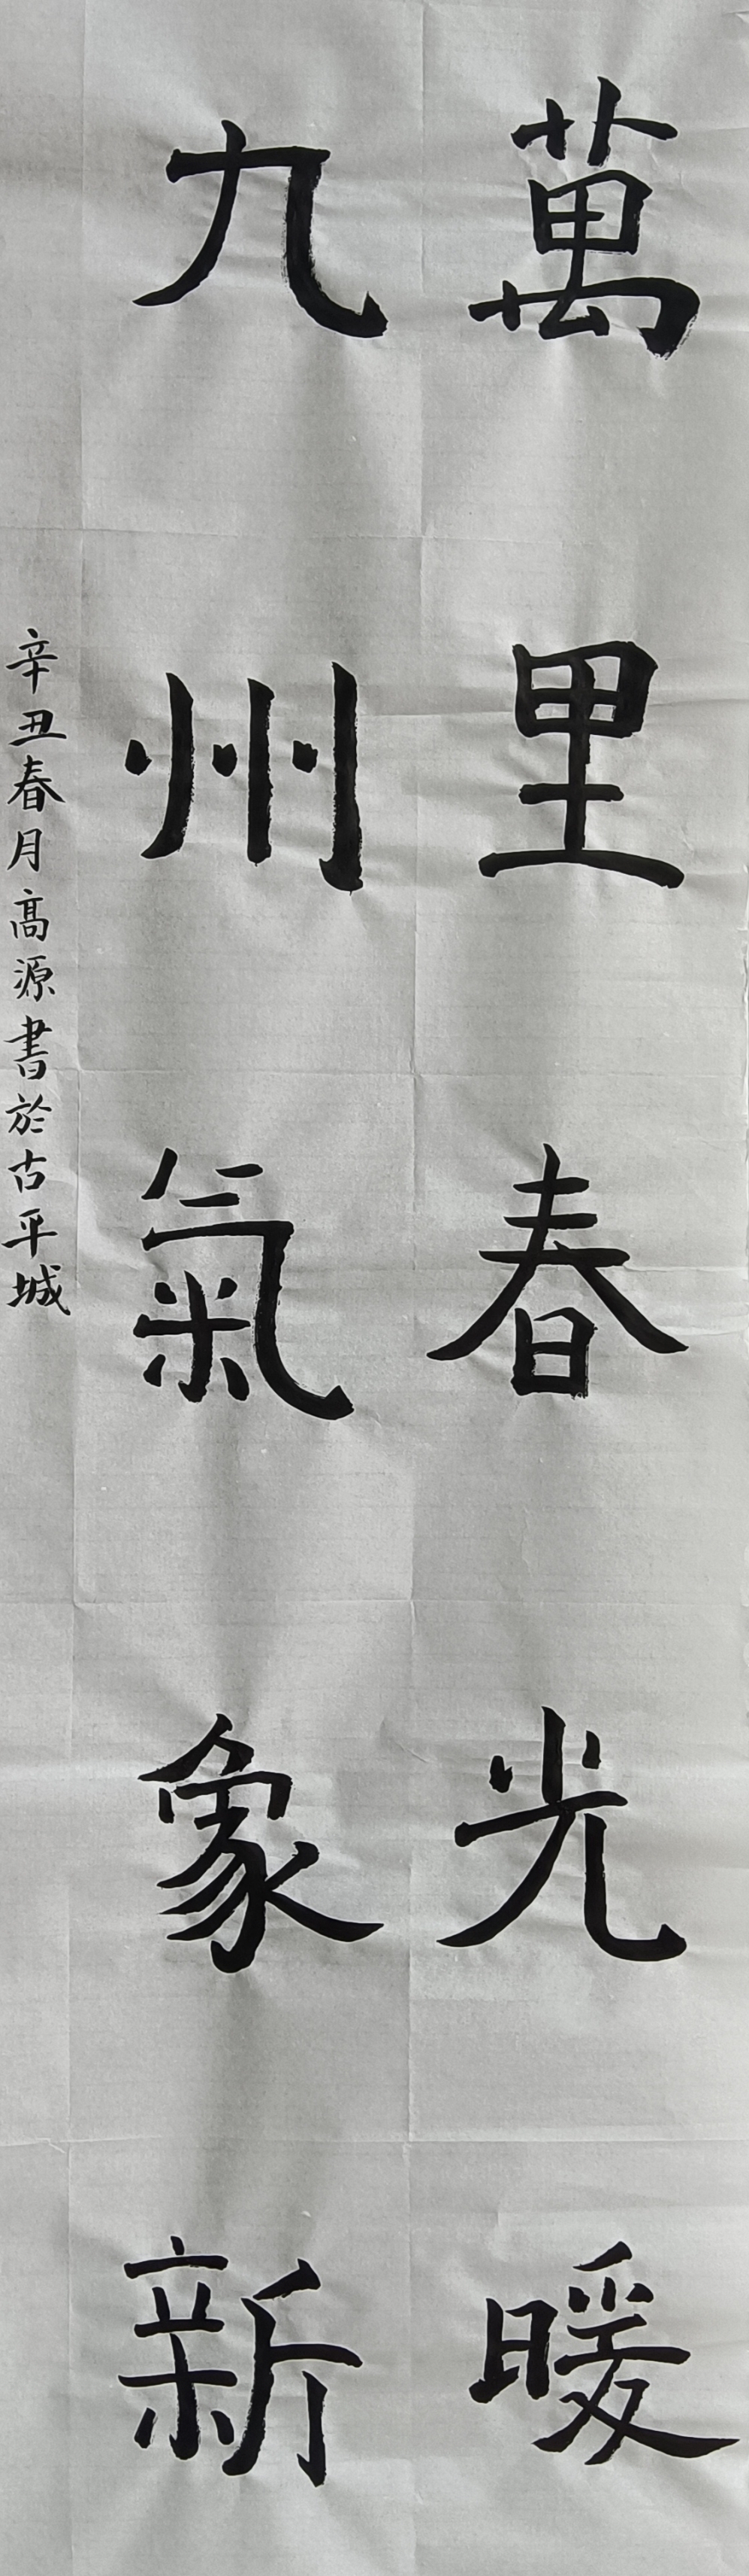 萬里春光暖
九州氣象新
辛丑春月高源書於古平城